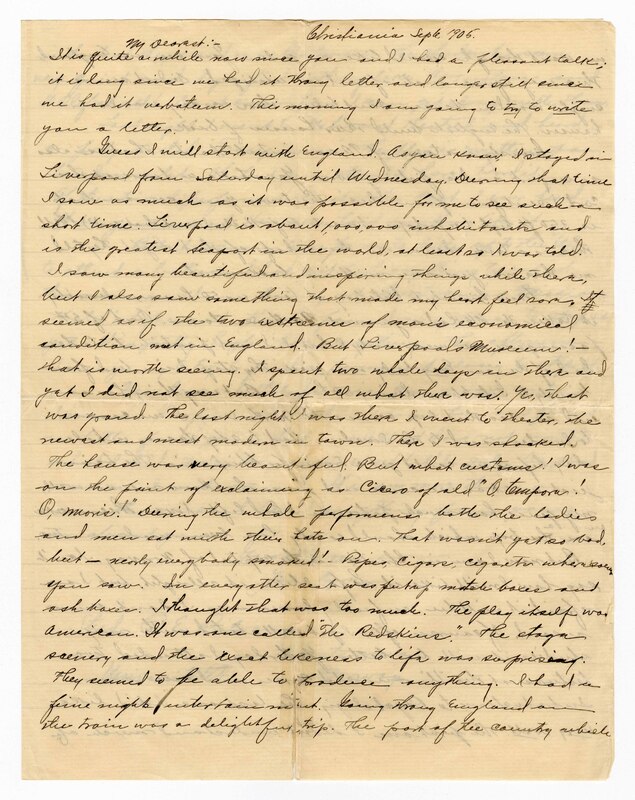 Christiania Sept. 1905.
My Dearest:-
It is quite a while now since you and I had a pleasant talk;
it is long since we had it thrug letter, and longer still since
we had it verbateem. This morning I am going to try to write
you a letter.
Guess I will start with England. As you know, I stayed in
Liverpool from Saturday until Wednesday. During that time
I saw as much as it was possible for me to see such a
short time. Liverpool is about 1,000,000 inhabitants and
is the greatest seaport in the world, at least so I was told.
I saw many beautiful and inspiring things while there,
but I also saw something that made my heart feel sore. It
seemed as if the two extremes of man's economical
condition met in England. But Liverpool's Museum! -
that is worth seeing. I spent two whole days in there and
yet I did not see much of all what there was. Yes, that
was grand. The last night I was there I went to theater, the
newest and most modern in town. There I was shocked.
The house was very beautiful. But what customs! I was
on the point of exclaiming as Cicero of old "O tempora!
O, moris!" During the whole paformens both the ladies
and men sat with their hats on. That wasn't yet so bad,
but — nearly everybody smoked! - Pipes, cigars, cigarets wherever
you saw. In every other seat was put up match boxes and
ash boxes. I thought that was too much. The play itself was
American. It was one called "The Redskins". The stage
scenery and the exact likeness to life was surprising.
They seemed to be able to produse anything. I had a
fine night entertainment. Going thrug England on
the train was a delightful trip. The part of the country which